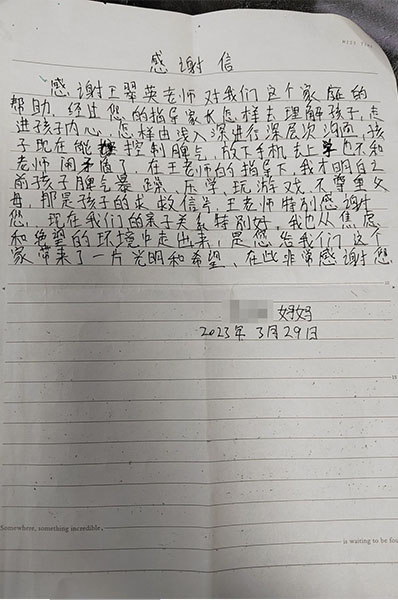 感谢信
感谢王翠英老师对我们这个家庭的
帮助、经过您的指导家长怎样去理解孩子,走
进孩子内心,怎样由浅入深进行深层次沟通,孩
子现在能控制脾气,放下手机去上学也不和
老师闹矛盾了,在王老师的指导下,我才明白之
前孩子脾气暴躁、厌学、玩游戏、不尊重父
母,那是孩子的求救信号,王老师特别感谢
您,现在我们的亲子关系特别好,我也从焦虑
和绝望的环境中走出来,是您给我们这个
家带来了一片光明和希望、在些非常感谢您
妈妈
2023年3月29日
Somewhere, something incredible,
is waiting to be fou